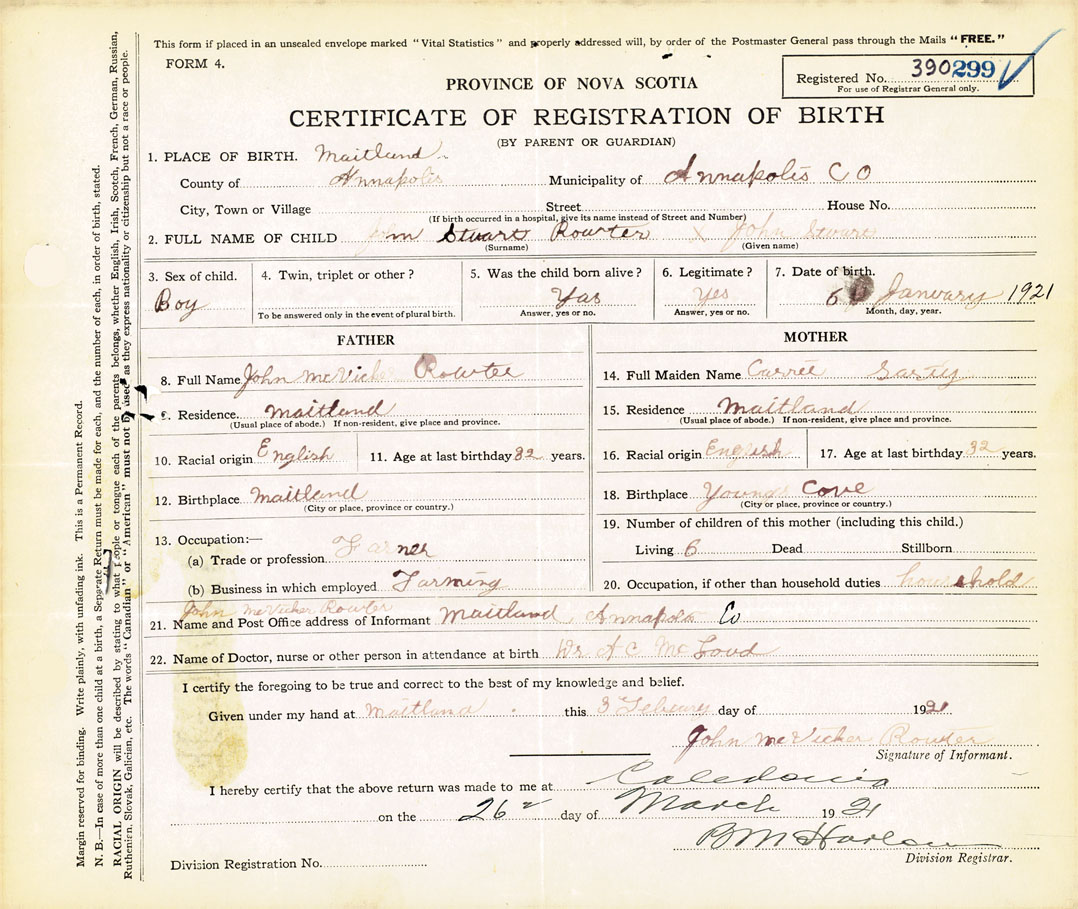 This form if placed in an unsealed envelope marked "Vital Statistics" and properly addressed will, by order of the Postmaster General pass through the Mails "FREE."
FORM 4.
Registered No. 390299
For use of Registrar General only.
PROVINCE OF NOVA SCOTIA
CERTIFICATE OF REGISTRATION OF BIRTH
(BY PARENT OR GUARDIAN)
1. PLACE OF BIRTH. Maitland
County of Annapolis Municipality of Annapolis CO
City, Town or Village Street House No.
(If birth occurred in a hospital, give its name instead of Street and Number)
2. FULL NAME OF CHILD John Stuart Rowter x John Stuart
(Surname) (Given name)
3. Sex of child. 4. Twin, triplet or other? 5. Was the child born alive? 6. Legitimate? 7. Date of birth.
Boy Yas Yes 6 January 1921
To be answered only in the event of plural birth. Answer, yes or no. Answer, yes or no. Month, day, year.
FATHER
8. Full Name John McVicker Rowter
9. Residence. Maitland
(Usual place of abode.) If non-resident, give place and province.
10. Racial origin English 11. Age at last birthday 32 years.
12. Birthplace Maitland
(City or place, province or country.)
13. Occupation:—
(a) Trade or profession Farmer
(b) Business in which employed Farming
MOTHER
14. Full Maiden Name Carrie
15. Residence Maitland
(Usual place of abode.) If non-resident, give place and province.
16. Racial origin English 17. Age at last birthday 32 years.
18. Birthplace Youngs Cove
(City or place, province or country.)
19. Number of children of this mother (including this child.)
Living 6 Dead Stillborn
20. Occupation, if other than household duties household
John McVicker Rowter
21. Name and Post Office address of Informant Maitland Annapolis Co
22. Name of Doctor, nurse or other person in attendance at birth Dr. A C
I certify the foregoing to be true and correct to the best of my knowledge and belief.
Given under my hand at Maitland this 3 Febuary day of 1921
John McVicker Rowter
Signature of Informant.
I hereby certify that the above return was made to me at Caledonia
on the 26 day of March 1921
B M Harlow
Division Registrar.
Division Registration No.
Margin reserved for binding. Write plainly, with unfading ink. This is a Permanent Record.
N. B.—In case of more than one child at a birth, a Separate Return must be made for each, and the number of each, in order of birth, stated.
RACIAL ORIGIN will be described by stating to what people or tongue each of the parents belongs, whether English, Irish, Scotch, French, German, Russian,
Ruthenian, Slovak, Galician, etc. The words "Canadian" or "American" must not be used as they express nationality or citizenship but not a race or people.